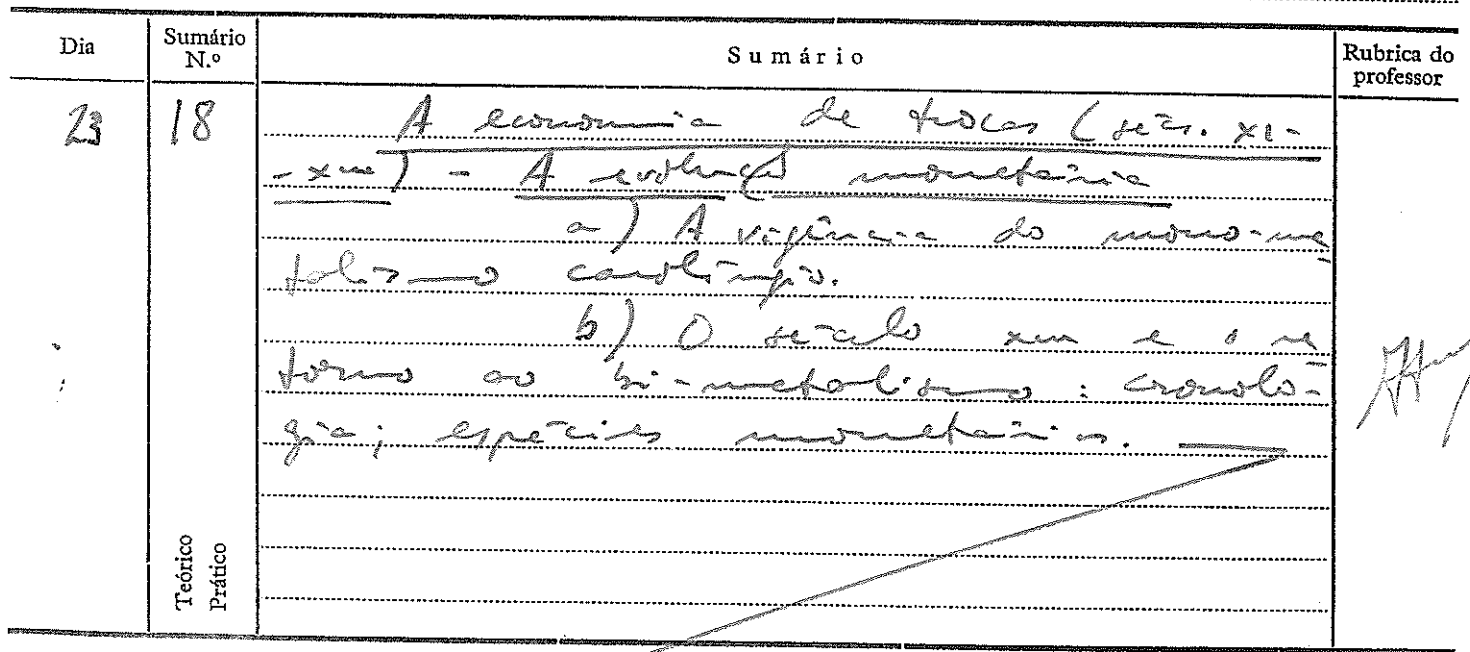 Dia
Sumário N.º
Sumário
Rubrica do professor
23
18
A economia de trocas (sécs. XI-
-XIII) - A evolução monetária
a) A vigência do mono-me
talismo carolíngio.
b) O século XIII e o re
torno ao bi-metalismo: cronolo-
gia; espécies monetárias.
Teórico
Prático